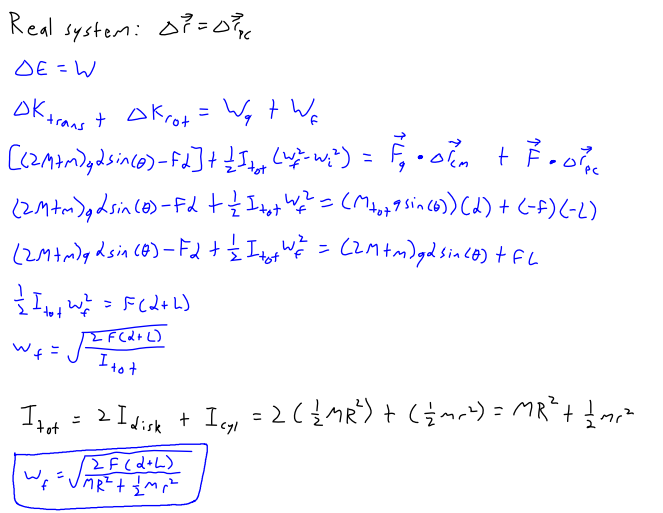 Real system: Δr⃗ = Δr⃗_pc
ΔE = W
ΔK_trans + ΔK_rot = W_g + W_f
[(2M+m)gdsin(θ)-Fd] + ½I_tot(w_f²-w_i²) = F⃗_g • Δr⃗_cm + F⃗ • Δr⃗_pc
(2M+m)gdsin(θ)-Fd + ½I_tot w_f² = (M_tot gsin(θ))(d) + (-f)(-L)
(2M+m)gdsin(θ)-Fd + ½I_tot w_f² = (2M+m)gdsin(θ) + FL
½I_tot w_f² = F(d+L)
w_f = √(2F(d+L)/I_tot)
I_tot = 2I_disk + I_cyl = 2(½MR²) + (½mr²) = MR² + ½mr²
w_f = √(2F(d+L)/(MR² + ½mr²))